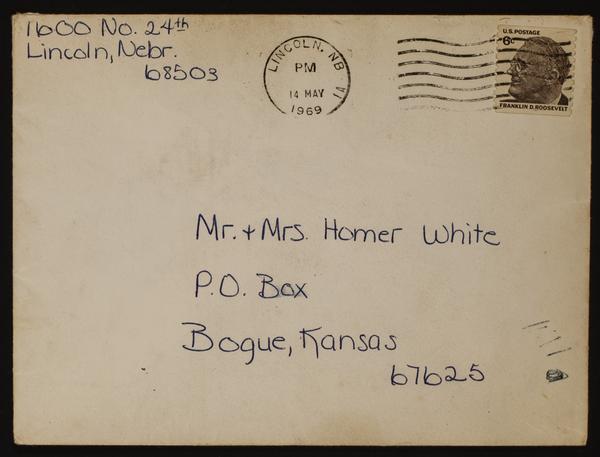 1600 No. 24th
Lincoln, Nebr.
68503
LINCOLN, NB
PM
14 MAY
1969
1A
U.S. POSTAGE
6¢
FRANKLIN D. ROOSEVELT
Mr. + Mrs. Homer White
P.O. Box
Bogue, Kansas
67625